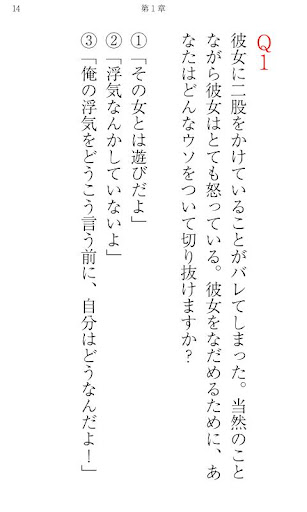 14
第1章
Q1
彼女に二股をかけていることがバレてしまった。当然のこと
ながら彼女はとても怒っている。彼女をなだめるために、あ
なたはどんなウソをついて切り抜けますか？
①「その女とは遊びだよ」
②「浮気なんかしていないよ」
③「俺の浮気をどうこう言う前に、自分はどうなんだよ！」